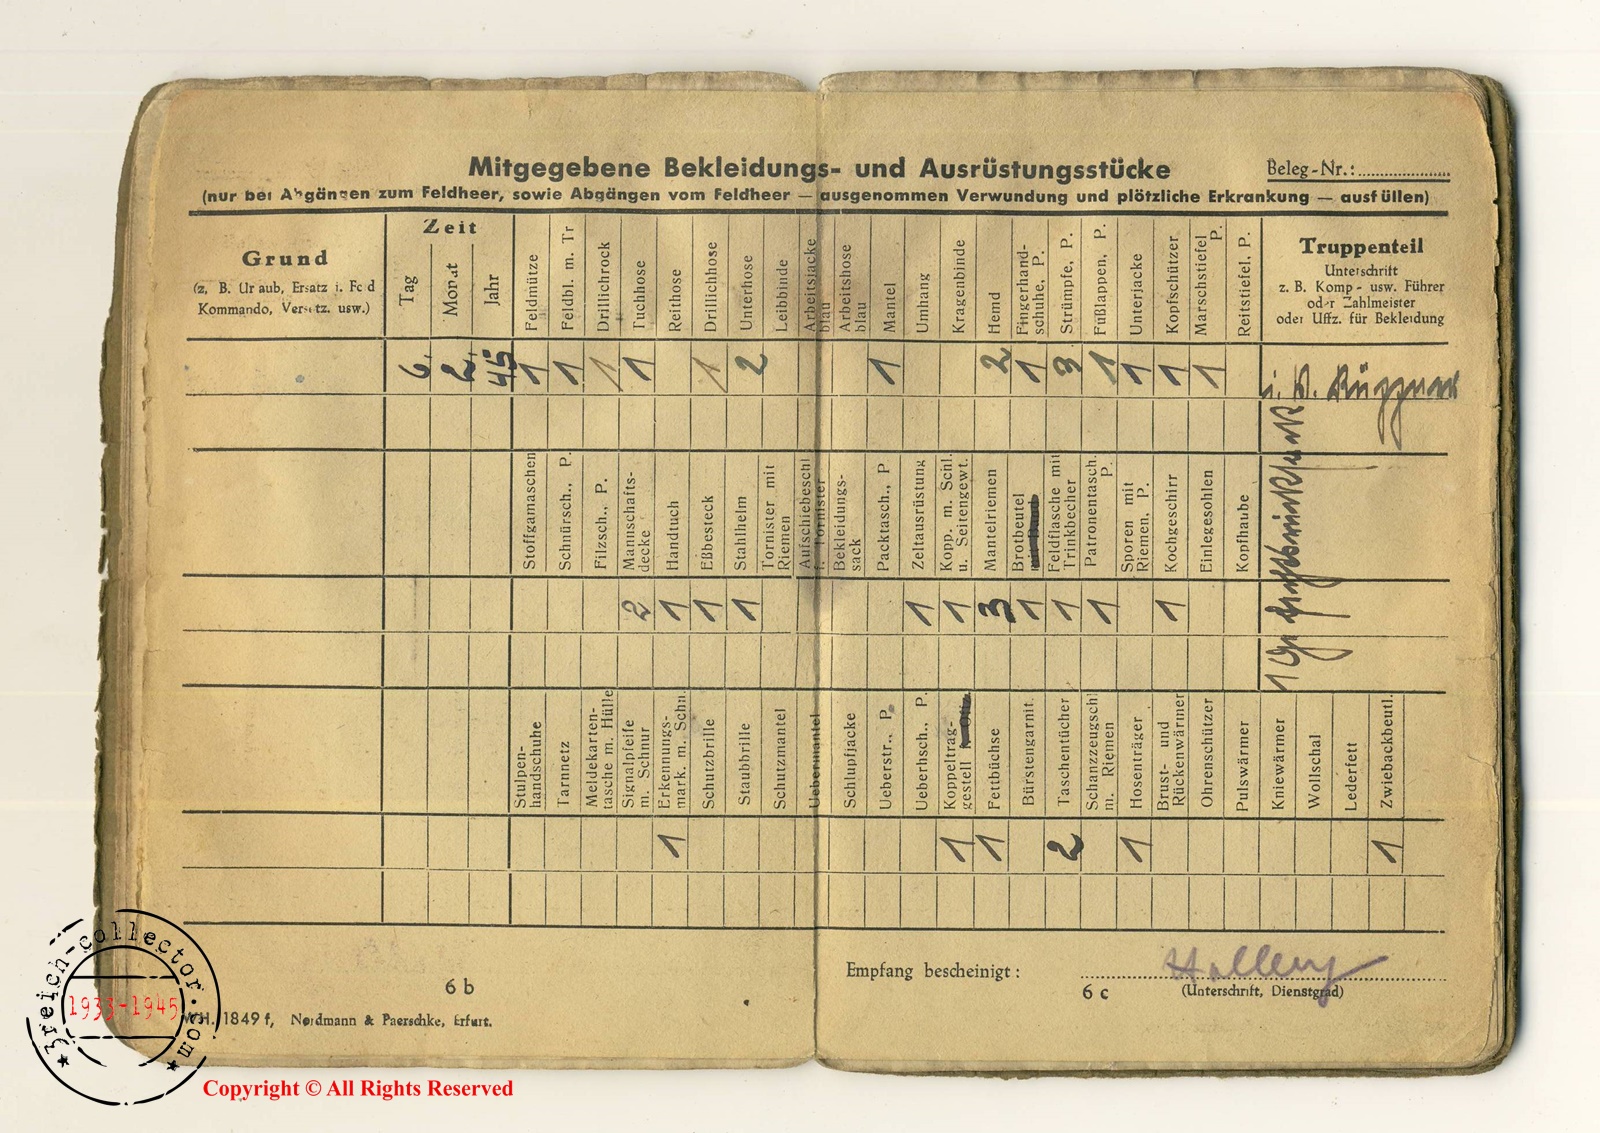 Mitgegebene Bekleidungs- und Ausrüstungsstücke
Beleg-Nr.:
(nur bei Abgängen zum Feldheer, sowie Abgängen vom Feldheer — ausgenommen Verwundung und plötzliche Erkrankung — ausfüllen)
Grund
(z. B. Urlaub, Ersatz i. Feld
Kommando, Versetz. usw.)
Zeit
Tag
Monat
Jahr
Feldmütze
Feldbl. m. Tr
Drillichrock
Tuchhose
Reithose
Drillichhose
Unterhose
Leibbinde
Arbeitsjacke
blau
Arbeitshose
blau
Mantel
Umhang
Kragenbinde
Hemd
Fingerhand-
schuhe, P.
Strümpfe, P.
Fußlappen, P.
Unterjacke
Kopfschützer
Marschstiefel
P.
Reitstiefel, P.
Truppenteil
Unterschrift
z. B. Komp - usw. Führer
oder Zahlmeister
oder Uffz. für Bekleidung
6. 2. 45 1 1 1 1 1 2 1 2 1 3 1 1 1 1
Stoffgamaschen
Schnürsch., P.
Filzsch., P.
Mannschafts-
decke
Handtuch
Eßbesteck
Stahlhelm
Tornister mit
Riemen
Aufschiebeschl
f. Tornister
Bekleidungs-
sack
Packtasch., P
Zeltausrüstung
Kopp. m. Schl.
u. Seitengewt.
Mantelriemen
Brotbeutel
Feldflasche mit
Trinkbecher
Patronentasch.
P.
Sporen mit
Riemen, P.
Kochgeschirr
Einlegesohlen
Kopfhaube
2 1 1 1 1 1 3 1 1 1 1
Stulpen-
handschuhe
Tarnnetz
Meldekarten-
tasche m. Hülle
Signalpfeife
m. Schnur
Erkennungs-
mark. m. Schn.
Schutzbrille
Staubbrille
Schutzmantel
Uebermantel
Schlupfjacke
Ueberstr., P.
Ueberhsch., P.
Koppeltrag-
gestell
Fettbüchse
Bürstengarnit.
Taschentücher
Schanzzeugschl
m. Riemen
Hosenträger
Brust- und
Rückenwärmer
Ohrenschützer
Pulswärmer
Kniewärmer
Wollschal
Lederfett
Zwiebackbeutl.
1 1 1 2 1 1
Empfang bescheinigt :
(Unterschrift, Dienstgrad)
6 b
6 c
W.H. 1849 f, Nordmann & Paerschke, Erfurt.
3reich-collector.com
1933-1945
Copyright © All Rights Reserved